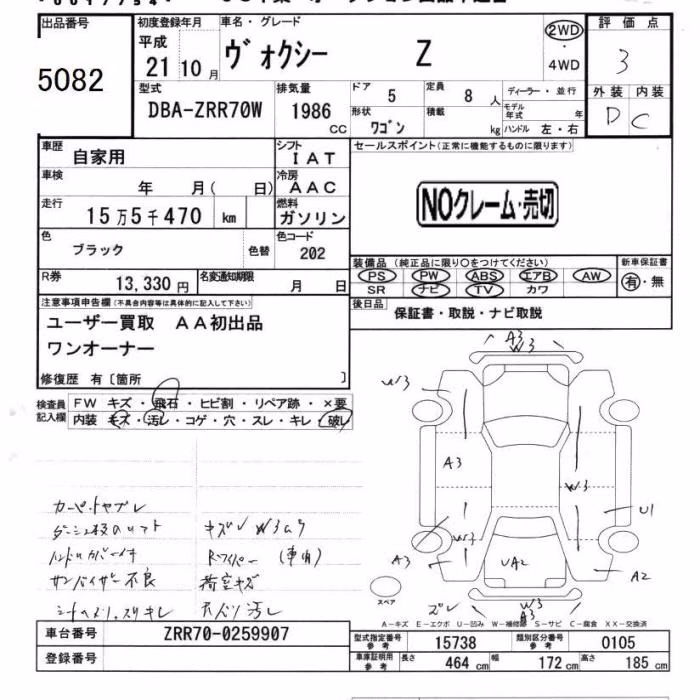 出品番号 初度登録年月 車名・グレード 評価点
5082 平成 21 10月 ヴォクシー Z 2WD・4WD 3
型式 排気量 ドア 5 定員 8人 ディーラー・並行 外装 内装
DBA-ZRR70W 1986 CC 形状 ワゴン 積載 kg モデル年式 年 ハンドル 左・右 D C
車歴 自家用 シフト IAT セールスポイント(正常に機能するものに限ります)
車検 年 月( 日) 冷房 AAC
走行 15万5千470 km 燃料 ガソリン NOクレーム・売切
色 ブラック 色替 色コード 202
装備品(純正品に限り○をつけてください) 新車保証書
R券 13,330円 名変通知期限 月 日 PS PW ABS エアB AW 有・無
SR ナビ TV カワ
注意事項申告欄(不具合内容等は具体的に記入して下さい) 後日品 保証書・取説・ナビ取説
ユーザー買取 AA初出品
ワンオーナー
修復歴 有〔箇所 〕
検査員記入欄 FW キズ・飛石・ヒビ割・リペア跡・×要
内装 キズ・汚レ・コゲ・穴・スレ・キレ・破レ
A3
W3
W3
A3
W3
U1
A3
UA2
A2
W3
A3
カーペットヤブレ
キズ
サンバイザー不良 荷室キズ
キレ 汚レ
スペア
A-キズ E-エクボ U-凹み W-補修跡 S-サビ C-腐食 XX-交換済
車台番号 ZRR70-0259907 型式指定番号 参考 15738 類別区分番号 参考 0105
登録番号 車庫証明用 参考 長さ 464 cm 幅 172 cm 高さ 185 cm